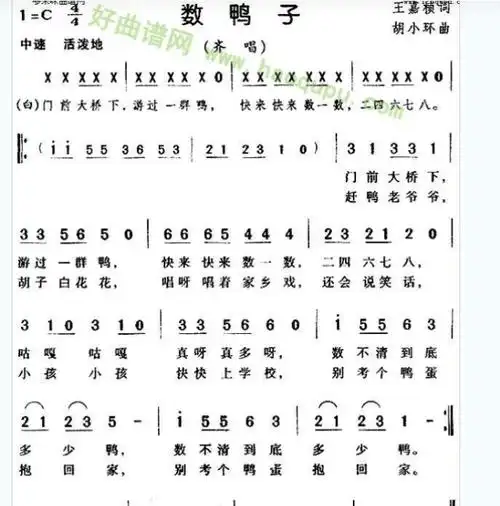 1=C 4/4
数 鸭 子
王嘉祯词
胡小环曲
中速 活泼地
(齐 唱)
好曲谱网
X X X X X X | X X X X X 0 | X X X X X X X | X X X X X X 0
(白)门前大桥下,游过一群鸭, 快来快来数一数,二四六七八。
( i i 5 5 3 6 5 3 | 2 1 2 3 1 0 ) | 3 1 3 3 1
门 前 大 桥 下,
赶 鸭 老 爷 爷,
3 3 5 6 5 0 | 6 6 6 5 4 4 4 | 2 3 2 1 2 0
游过一群鸭, 快来快来数一数, 二四六七八,
胡子白花花, 唱呀唱着家乡戏, 还会说笑话,
3 1 0 3 1 0 | 3 3 5 6 6 0 | i 5 5 6 3
咕嘎 咕嘎 真呀真多呀, 数 不清到底
小孩 小孩 快快上学校, 别 考个鸭蛋
2 1 2 3 5 - | i 5 5 6 3 | 2 1 2 3 1 -
多 少 鸭, 数 不清到底 多 少 鸭。
抱 回 家, 别 考个鸭蛋 抱 回 家。